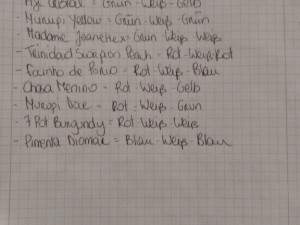 Aji Cristal = Grün - Weiß - Gelb
Murupi Yellow = Grün - Weiß - Grün
Madame Jeanette = Grün Weiß Weiß
- Trinidad Scorpion Peach - Rot - Weiß - Rot
- Focinho de Porco - Rot - Weiß - Blau
- Chasa Menino - Rot - Weiß - Gelb
- Murupi = Rot = Weiß - Grün
- 7 Pot Burgundy = Rot - Weiß - Weiß
- Pimenta Diomar = Blau - Weiß - Blau